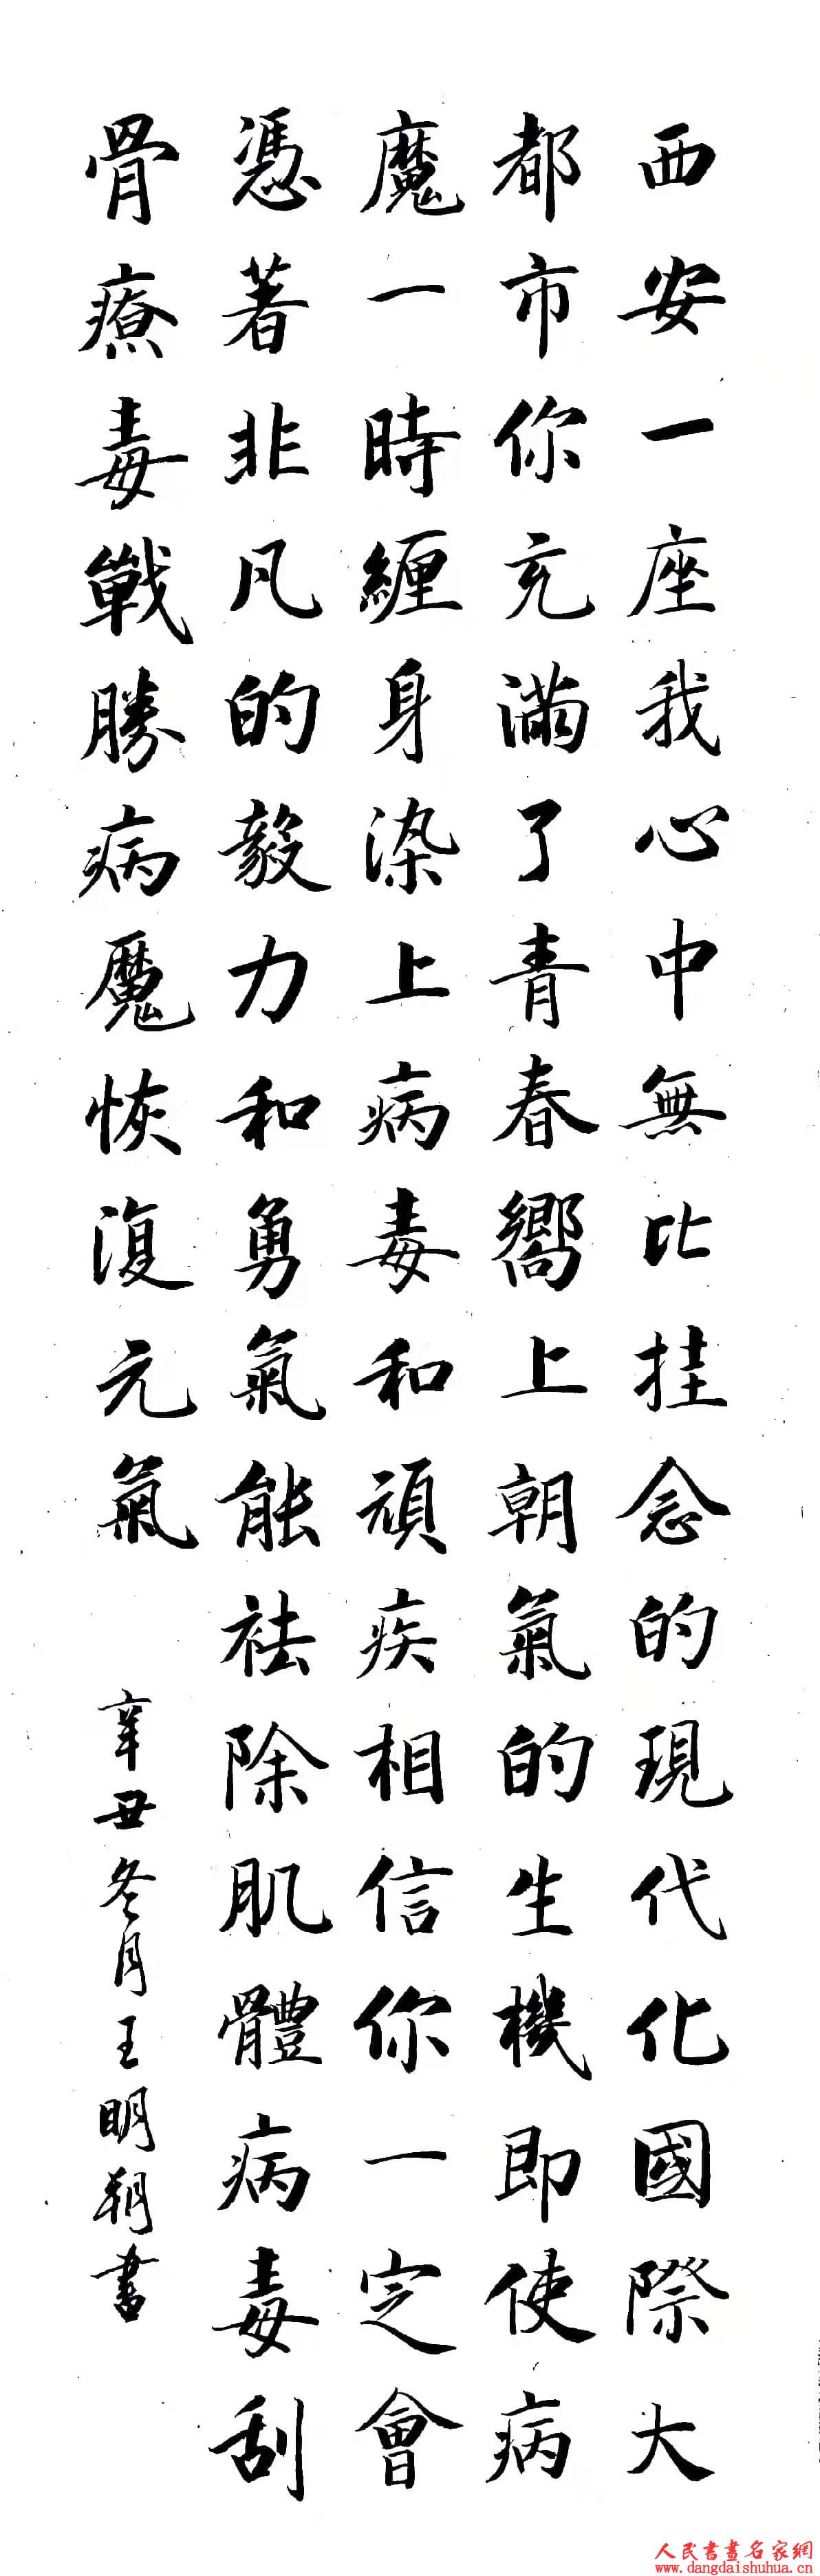 西安一座我心中無比挂念的現代化國際大
都市你充滿了青春嚮上朝氣的生機即使病
魔一時纏身染上病毒和頑疾相信你一定會
憑著非凡的毅力和勇氣能祛除肌體病毒刮
骨療毒戰勝病魔恢復元氣
辛丑冬月王明朔書
人民書畫名家網
www.dangdaishuhua.cn